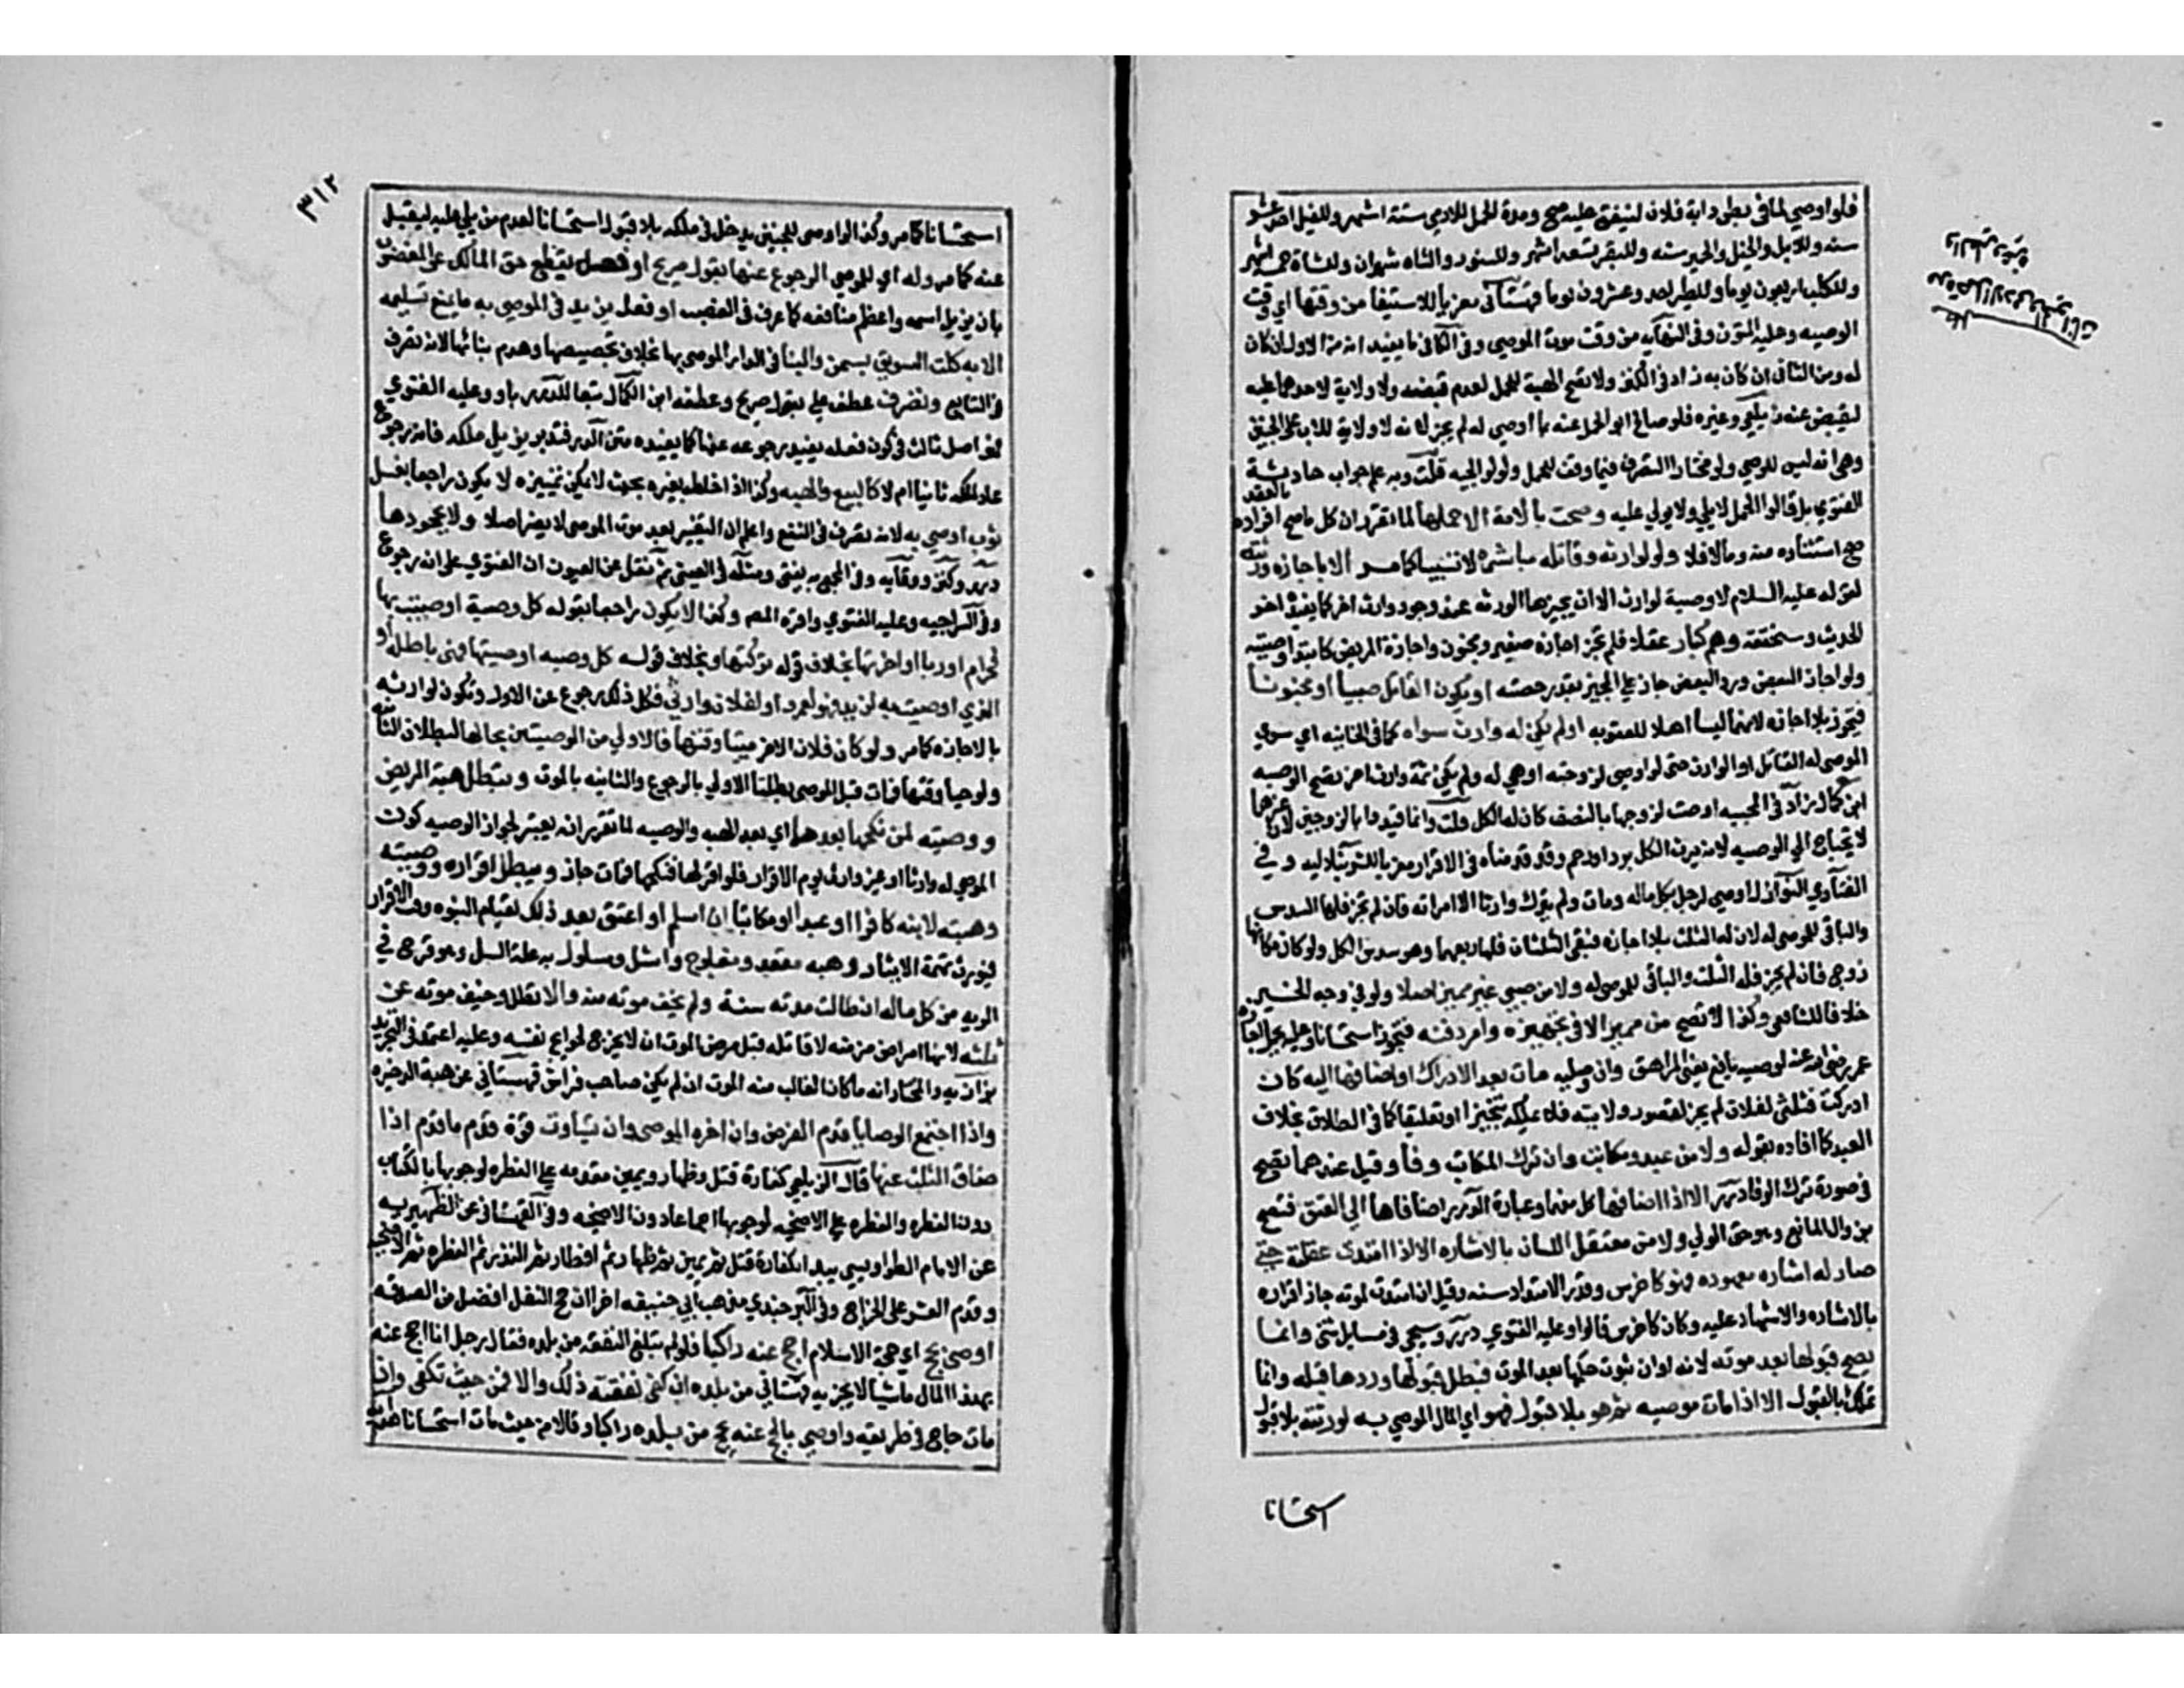 فلو اوصي لما في بطن دابة فلان لينفق عليه صح ومدة الحمل للادمي ستة اشهر وللفيل احد عشر
سنه وللابل والخيل والحمير سنه وللبقر تسعه اشهر وللسنور والشاه شهران وللشاة خمسة اشهر
وللكلب اربعون يوما وللطير احد وعشرون يوما قهستاني معزيا للاستيفا من وقتها اي وقت
الوصيه وعليه المتون وفي النهايه من وقت موت الموصي وفي الكافي ما يفيد انه من الاول ان كان
له ومن الثاني ان كان به زاد في الكنز ولا تصح الهبة للحمل لعدم قبضه ولا ولاية لاحد عليه
ليقبض عنه زيلعي وغيره فلو صالح ابو الحمل عنه بما اوصي له لم يجز لانه لا ولاية للاب على الجنين
وهي انه ليس للوصي ولو مختارا التصرف فيما وقف للحمل ولوالجيه قلت وبه علم جواب حادثة
الفتوي بل قالوا الحمل لا يلي ولا يولي عليه وصحت بالامة الا حملها لما تقرر ان كل ما صح افراده بالعقد
صح استثناؤه منه وما لا فلا ولا لوارثه وقاتله مباشرة لا تسببا كما مر الا باجازة ورثته
لقوله عليه السلام لا وصية لوارث الا ان يجيزها الورثه عند وجود وارث اخر كما يفيده اخر
الحديث وسنحققه وهم كبار عقلاء فلم تجز اجازة صغير ومجنون واجازة المريض كابتداء وصيته
ولو اجاز البعض ورد البعض جاز علي المجيز بقدر حصته او يكون القاتل صبيا او مجنونا
فتجوز بلا اجازه لانهما ليسا اهلا للعقوبه او لم يكن له وارث سواه كما في الخانيه اي سوي
الموصي له القاتل او الوارث حتى لو اوصي لزوجته او هي له ولم يكن ثمة وارث اخر تصح الوصيه
ابن كمال زاد في المحبيه اوصت لزوجها بالنصف كان له الكل قلت وانما قيدوا بالزوجين لان غيرهما
لا يحتاج الي الوصيه لانه يرث الكل برد او رحم وقد قدمناه في الاقرار معزيا للشرنبلاليه وفي
الفتاوي النوازل اوصي لرجل بكل ماله ومات ولم يترك وارثا الا امراته فان لم تجز فلها السدس
والباقي للموصي له لان له الثلث بلا اجازه فبقي الثلثان فلها ربعهما وهو سدس الكل ولو كان مكانها
زوج فان لم يجز فله الثلث والباقي للموصي له ولا من صبي غير مميز اصلا ولو في وجه الخير
خلافا للشافعي وكذا لا تصح من مميز الا في تجهيزه وامر دفنه فتجوز استحسانا وعليه يحمل اجازة
عمر رضي الله عنه لوصيه يافع يعني المراهق وان وصليه مات بعد الادراك او اضافها اليه كان
ادركت فثلثي لفلان لم يجز لقصور ولايته فلا يملكه تنجيزا او تعليقا كما في الطلاق بخلاف
العبد كما افاده بقوله ولا من عبد ومكاتب وان ترك المكاتب وفاء وقيل عندهما تصح
في صورة ترك الوفا درر الا اذا اضافها كل منهما وعبارة الدرر اضافاها الي العتق فتصح
بزوال المانع وهو حق الولي ولا من معتقل اللسان بالاشاره الا اذا امتدت عقلته حتي
صار له اشاره معهوده فهو كاخرس وقدر الامتداد سنه وقيل ان امتدت لموته جاز اقراره
بالاشاره والاشهاد عليه وكان كاخرس قالوا وعليه الفتوي درر وسيجي في مسايل شتى وانما
يصح قبولها بعد موته لانه اوان ثبوت حكمها بعد الموت فبطل قبولها وردها قبله وانما
تملك بالقبول الا اذا مات موصيه ثم هو بلا قبول فهو اي المال الموصي به لورثته بلا قبول
استحسانا
٣١٢
استحسانا كما مر وكذا لو اوصى للجنين يدخل في ملكه بلا قبول استحسانا لعدم من يلي عليه ليقبل
عنه كما مر وله اي للموصي الرجوع عنها بقول صريح او فعل يقطع حق المالك عن المغصوب
بان يزيل اسمه واعظم منافعه كما عرف في الغصب او فعل يزيد في الموصي به ما يمنع تسليمه
الا به كلت السويق بسمن والبنا في الدار الموصي بها بخلاف تجصيصها وهدم بنائها لانه تصرف
في التابع وتصرف عطف على بقول صريح وعطفه ابن الكمال تبعا للدرر باو وعليه الفتوي
فهو اصل ثالث في كون فعله يفيد رجوعه عنها كما يفيده متن الدرر فتدبر يزيل ملكه فانه رجوع
عاد لملكه ثانيا ام لا كالبيع والهبه وكذا اذا خلطه بغيره بحيث لا يمكن تمييزه لا يكون راجعا بغسل
ثوب اوصي به لانه تصرف في النفع واعلم ان التغير بعد موت الموصي لا يضر اصلا ولا بجحودها
درر وكنز ووقايه وفي المجمع به يفتى ومثله في العيني ثم نقل عن العيون ان الفتوي على انه رجوع
وفي السراجيه وعليه الفتوي واقره المص وكذا لا يكون راجعا بقوله كل وصية اوصيت بها
فحرام او ربا او اخرتها بخلاف قوله تركتها وبخلاف قوله كل وصيه اوصيتها فهي باطلة او
الذي اوصيت به لزيد فهو لعمرو او لفلان وارثي فكل ذلك رجوع عن الاول وتكون لوارثه
بالاجازه كما مر ولو كان فلان الاخر ميتا وقتها فالاولي من الوصيتين بحالها لبطلان الثانيه
ولو حيا وقتها فمات قبل الموصي بطلتا الاولي بالرجوع والثانيه بالموت وتبطل هبة المريض
ووصيته لمن نكحها بعدها اي بعد الهبه والوصيه لما تقرر انه يعتبر لجواز الوصيه كون
الموصي له وارثا او غير وارث يوم الاقرار فلو اقر لها فنكحها فمات جاز ويبطل اقراره ووصيته
وهبته لابنه كافرا او عبدا او مكاتبا ان اسلم او اعتق بعد ذلك لقيام البنوه وقت الاقرار
فيورث تهمة الايثار وهبه مقعد ومفلوج واشل ومسلول به علة السل وهو قرح في
الريه من كل ماله ان طالت مدته سنة ولم يخف موته منه والا تطل وخيف موته عن
ثلثه لانها امراض مزمنه لا قاتله قبل مرض الموت ان لا يخرج لحوايج نفسه وعليه اعتمد في التجريد
بزازيه والمختار انه ما كان الغالب منه الموت ان لم يكن صاحب فراش قهستاني عن هبة الذخيره
واذا اجتمع الوصايا قدم الفرض وان اخره الموصي وان تساوت قوة قدم ما قدم اذا
ضاق الثلث عنها قال الزيلعي كفارة قتل وظهار ويمين مقدمه على الفطره لوجوبها بالكتاب
دون الفطره والفطره على الاضحيه لوجوبها اجماعا دون الاضحيه وفي القهستاني عن الظهيريه
عن الامام الطواويسي يبدا بكفارة قتل ثم يمين ثم ظهار ثم افطار ثم النذر ثم الفطره ثم الاضحيه
وقدم العشر على الخراج وفي البرجندي مذهب ابي حنيفه اخرا ان حج النفل افضل من الصدقه
اوصي بحج اي حجة الاسلام احج عنه راكبا فلو لم تبلغ النفقه من بلده فقال رجل انا احج عنه
بهذا المال ماشيا لا يجزيه قهستاني من بلده ان كفى نفقته ذلك والا فمن حيث تكفي وان
مات حاج في طريقه واوصي بالحج عنه يحج من بلده راكبا وقالا من حيث مات استحسانا